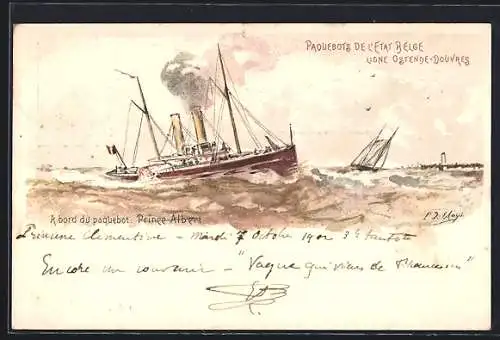 PAQUEBOTS DE L'ETAT BELGE
LIGNE OSTENDE-DOUVRES
A bord du paquebot: Prince Albert
Princesse Clementine – Mardi 7 Octobre
Encore un souvenir – "Vague qui viens de